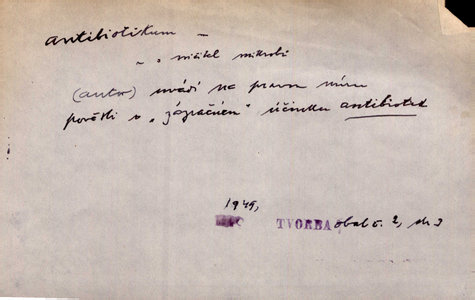 antibiotikum -
- o ničitel mikrobů
(autor) uvádí na pravou míru
pověsti o „zázračném" účinku antibiotik
1949,
TVORBA obal č. 2, str. 3